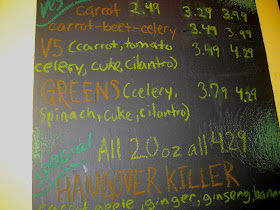 carrot 2.49 3.29 3.99
carrot-beet-celery 3.49 3.99
V5 (carrot, tomato 3.49 4.29
celery, cuke, cilantro)
GREENS (celery, 3.79 4.29
spinach, cuke, cilantro)
Special All 20oz all 4.29
HANGOVER KILLER
apple, ginger, ginseng, banan